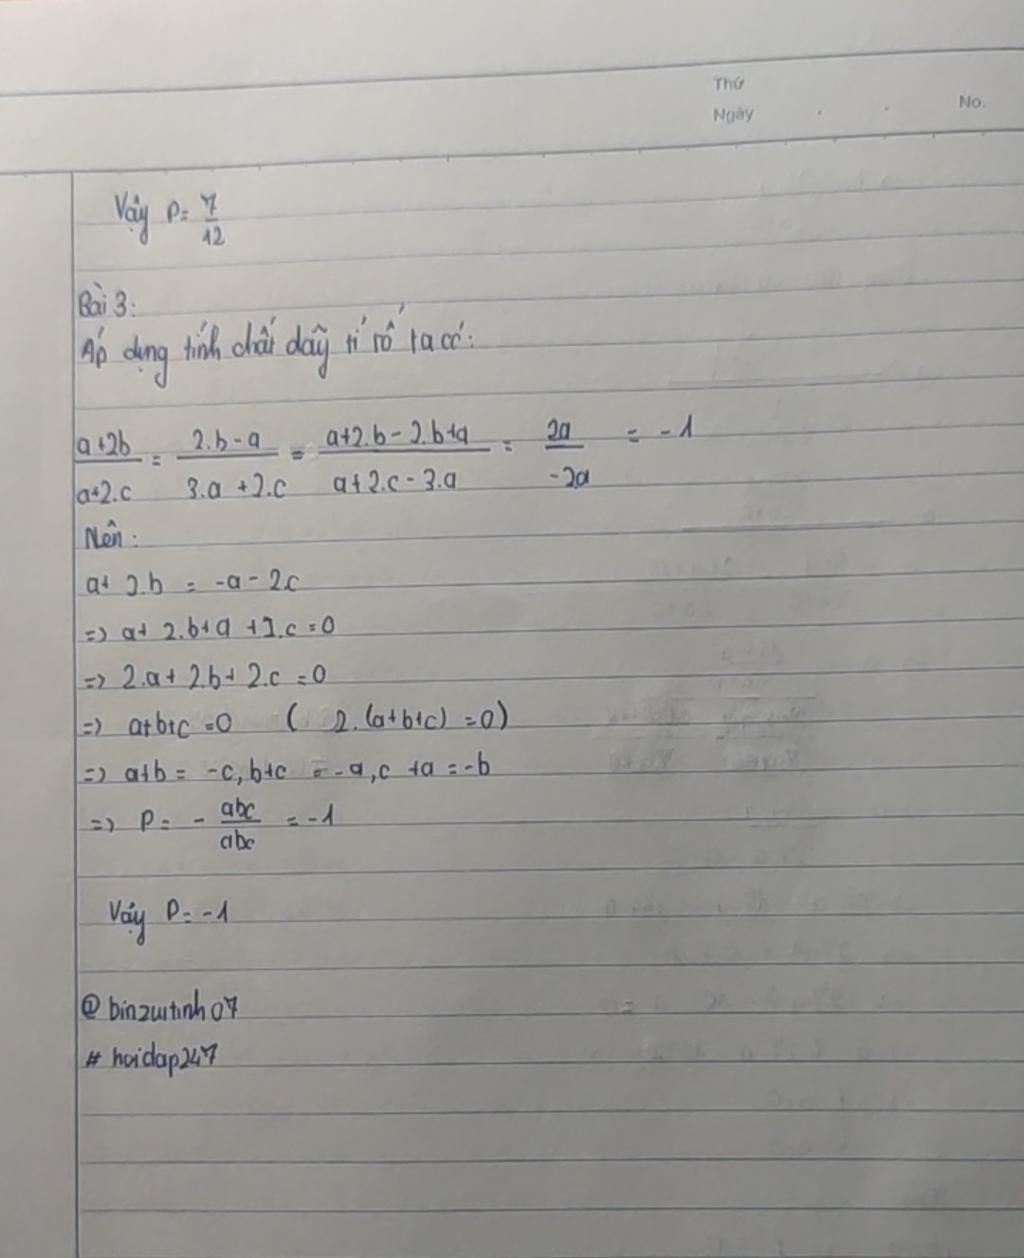 Thứ
Ngày
No.
Vậy P = 7/12
Bài 3:
Áp dụng tính chất dãy tỉ số ta có:
a+2b/a+2.c = 2.b-a/3.a+2.c = a+2.b-2.b+a/a+2.c-3.a = 2a/-2a = -1
Nên:
a+2.b = -a-2c
=> a+2.b+a+2.c=0
=> 2.a+2.b+2.c=0
=> a+b+c=0 (2.(a+b+c)=0)
=> a+b = -c, b+c = -a, c+a = -b
=> P = - abc/abc = -1
Vậy P = -1
@binzuitinh07
# hoidap247